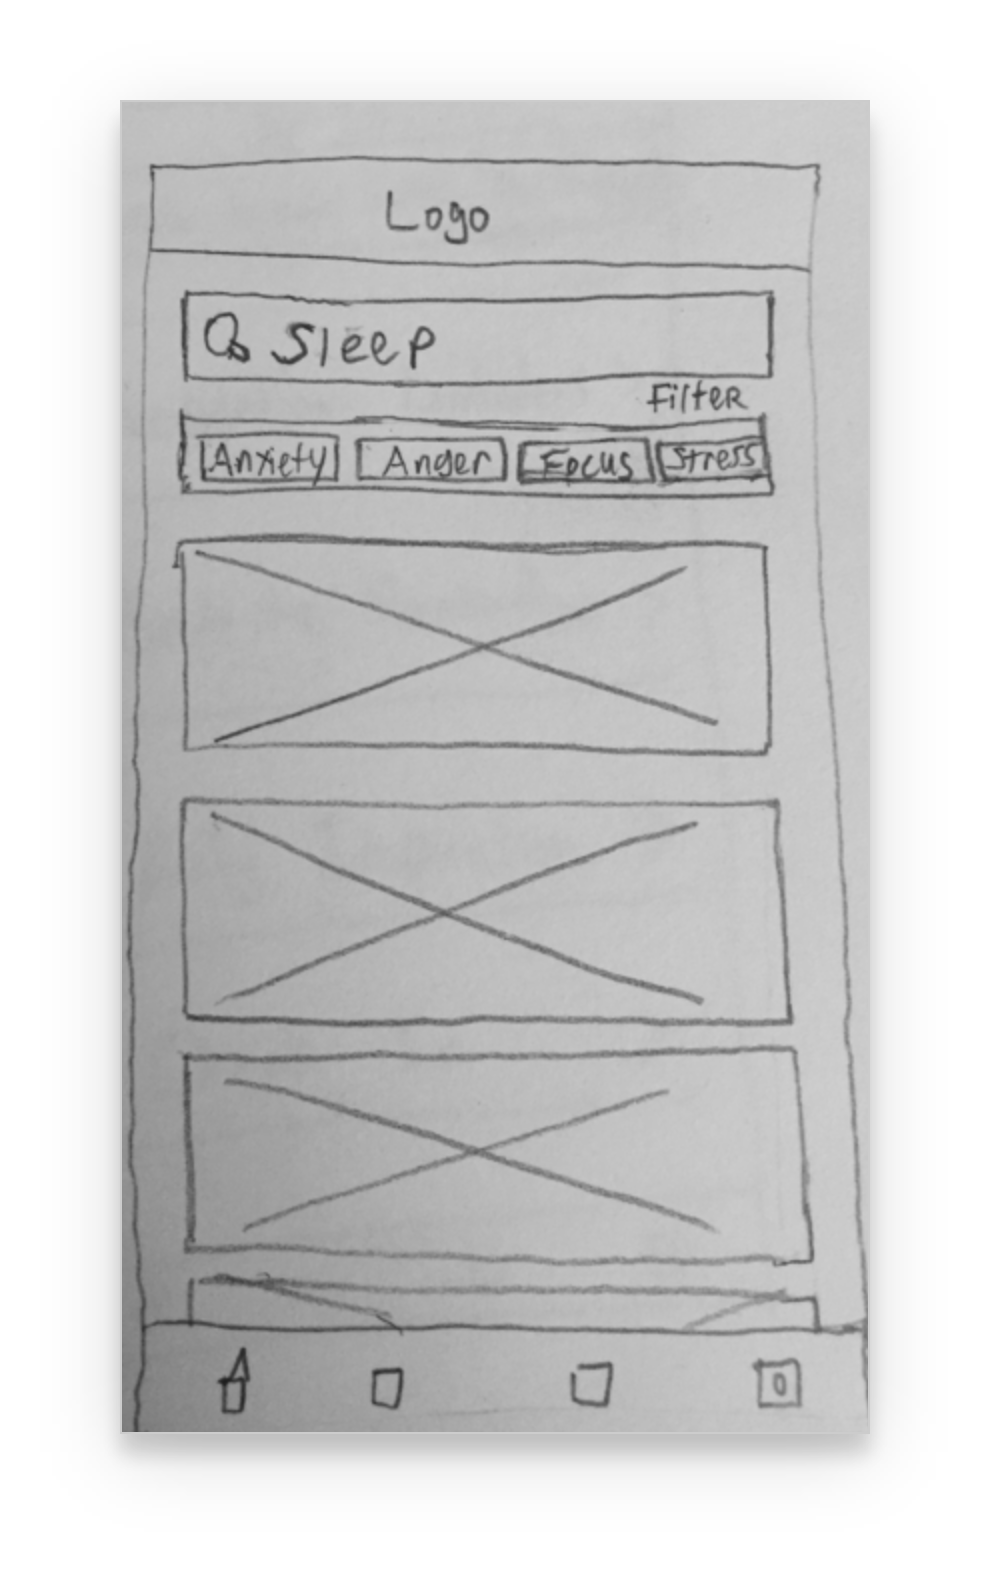 Logo
Sleep
Filter
Anxiety Anger Focus Stress
0